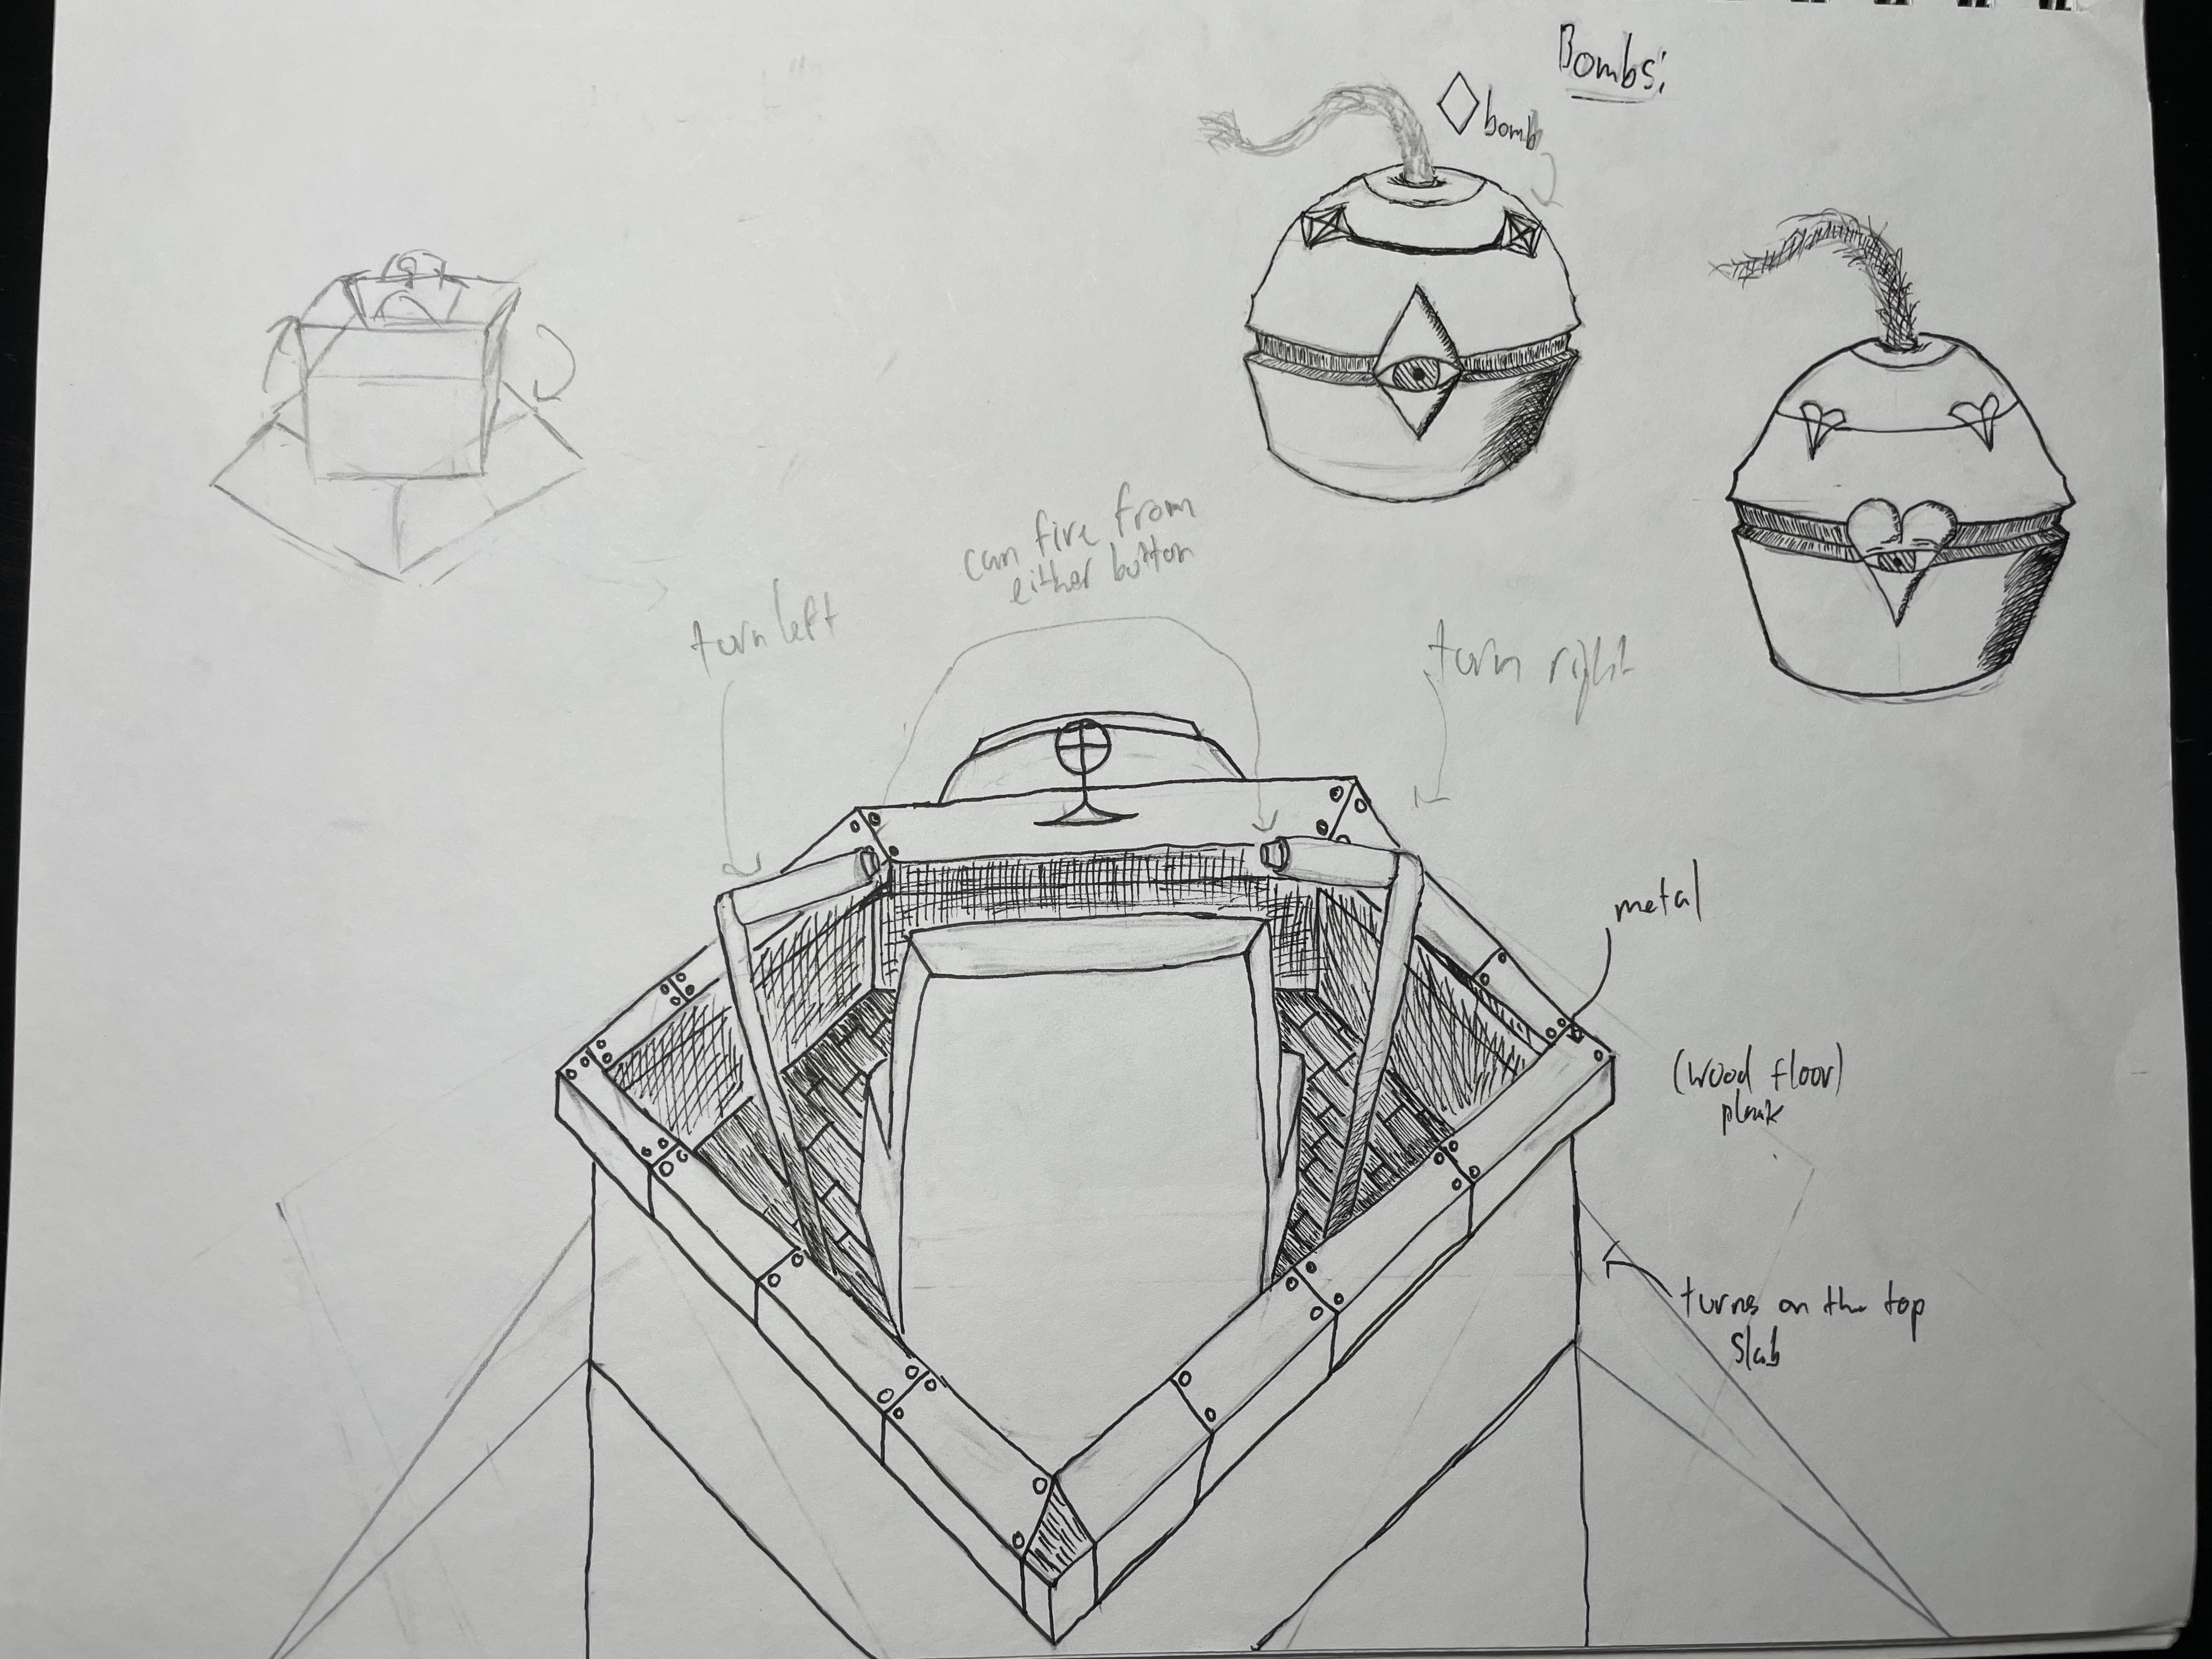 Bombs:
◇ bomb
can fire from
either button
turn left
turn right
metal
(wood floor)
plank
turns on the top
slab